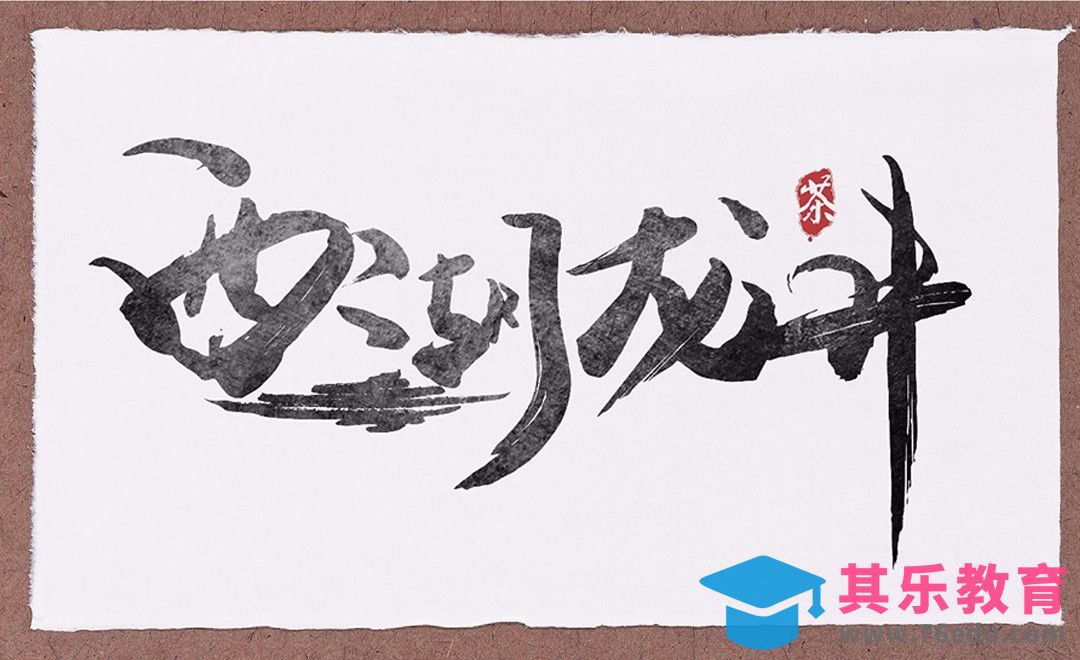 西湖龙井
茶
其乐教育
www.76edu.com